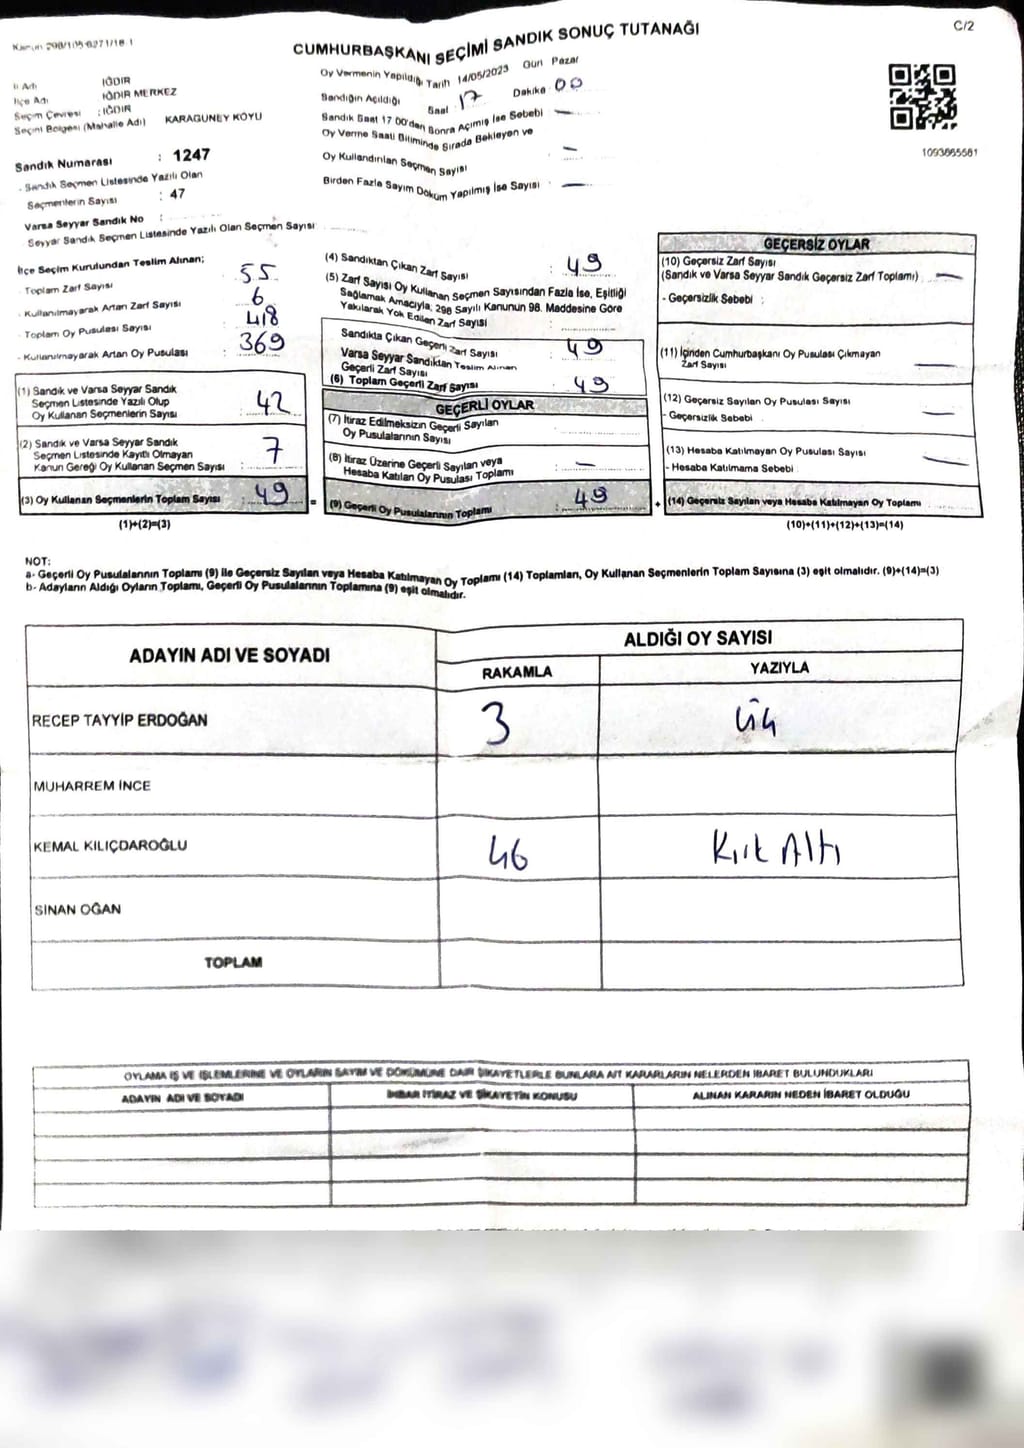 Kanun 298/105-6271/18-1
C/2
CUMHURBAŞKANI SEÇİMİ SANDIK SONUÇ TUTANAĞI
İl Adı : IĞDIR
İlçe Adı : IĞDIR MERKEZ
Seçim Çevresi : IĞDIR
Seçim Bölgesi (Mahalle Adı) KARAGUNEY KOYU
Sandık Numarası : 1247
- Sandık Seçmen Listesinde Yazılı Olan
Seçmenlerin Sayısı : 47
Varsa Seyyar Sandık No :
Seyyar Sandık Seçmen Listesinde Yazılı Olan Seçmen Sayısı :
Oy Vermenin Yapıldığı Tarih 14/05/2023 Gün Pazar
Sandığın Açıldığı Saat 17 Dakika 00
Sandık Saat 17 00'den Sonra Açımış İse Sebebi : —
Oy Verme Saati Bitiminde Sırada Bekleyen ve
Oy Kullandırılan Seçmen Sayısı : —
Birden Fazla Sayım Döküm Yapılmış İse Sayısı : —
1093865581
İlçe Seçim Kurulundan Teslim Alınan;
- Toplam Zarf Sayısı : 55
- Kullanılmayarak Artan Zarf Sayısı : 6
- Toplam Oy Pusulası Sayısı : 418
- Kullanılmayarak Artan Oy Pusulası : 369
(1) Sandık ve Varsa Seyyar Sandık
Seçmen Listesinde Yazılı Olup
Oy Kullanan Seçmenlerin Sayısı : 42
(2) Sandık ve Varsa Seyyar Sandık
Seçmen Listesinde Kayıtlı Olmayan
Kanun Gereği Oy Kullanan Seçmen Sayısı : 7
(3) Oy Kullanan Seçmenlerin Toplam Sayısı : 49 =
(1)+(2)=(3)
(4) Sandıktan Çıkan Zarf Sayısı : 49
(5) Zarf Sayısı Oy Kullanan Seçmen Sayısından Fazla İse, Eşitliği
Sağlamak Amacıyla, 298 Sayılı Kanunun 98. Maddesine Göre
Yakılarak Yok Edilen Zarf Sayısı :
Sandıkta Çıkan Geçerli Zarf Sayısı : 49
Varsa Seyyar Sandıktan Teslim Alınan
Geçerli Zarf Sayısı :
(6) Toplam Geçerli Zarf Sayısı : 49
GEÇERLİ OYLAR
(7) İtiraz Edilmeksizin Geçerli Sayılan
Oy Pusulalarının Sayısı :
(8) İtiraz Üzerine Geçerli Sayılan veya
Hesaba Katılan Oy Pusulası Toplamı : —
(9) Geçerli Oy Pusulalarının Toplamı : 49 +
GEÇERSİZ OYLAR
(10) Geçersiz Zarf Sayısı
(Sandık ve Varsa Seyyar Sandık Geçersiz Zarf Toplamı) : —
- Geçersizlik Sebebi :
(11) İçinden Cumhurbaşkanı Oy Pusulası Çıkmayan
Zarf Sayısı —
(12) Geçersiz Sayılan Oy Pusulası Sayısı
- Geçersizlik Sebebi : —
(13) Hesaba Katılmayan Oy Pusulası Sayısı
- Hesaba Katılmama Sebebi : —
(14) Geçersiz Sayılan veya Hesaba Katılmayan Oy Toplamı
(10)+(11)+(12)+(13)=(14)
NOT:
a- Geçerli Oy Pusulalarının Toplamı (9) ile Geçersiz Sayılan veya Hesaba Katılmayan Oy Toplamı (14) Toplamları, Oy Kullanan Seçmenlerin Toplam Sayısına (3) eşit olmalıdır. (9)+(14)=(3)
b- Adayların Aldığı Oyların Toplamı, Geçerli Oy Pusulalarının Toplamına (9) eşit olmalıdır.
ADAYIN ADI VE SOYADI
ALDIĞI OY SAYISI
RAKAMLA YAZIYLA
RECEP TAYYİP ERDOĞAN 3 üç
MUHARREM İNCE
KEMAL KILIÇDAROĞLU 46 Kırk Altı
SİNAN OĞAN
TOPLAM
OYLAMA İŞ VE İŞLEMLERİNE VE OYLARIN SAYIM VE DÖKÜMÜNE DAİR ŞİKAYETLERLE BUNLARA AİT KARARLARIN NELERDEN İBARET BULUNDUKLARI
ADAYIN ADI VE SOYADI İHBAR İTİRAZ VE ŞİKAYETİN KONUSU ALINAN KARARIN NEDEN İBARET OLDUĞU